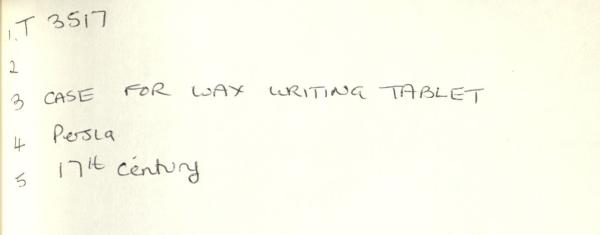 1. T 3517
2
3 CASE FOR WAX WRITING TABLET
4 Persia
5 17th century